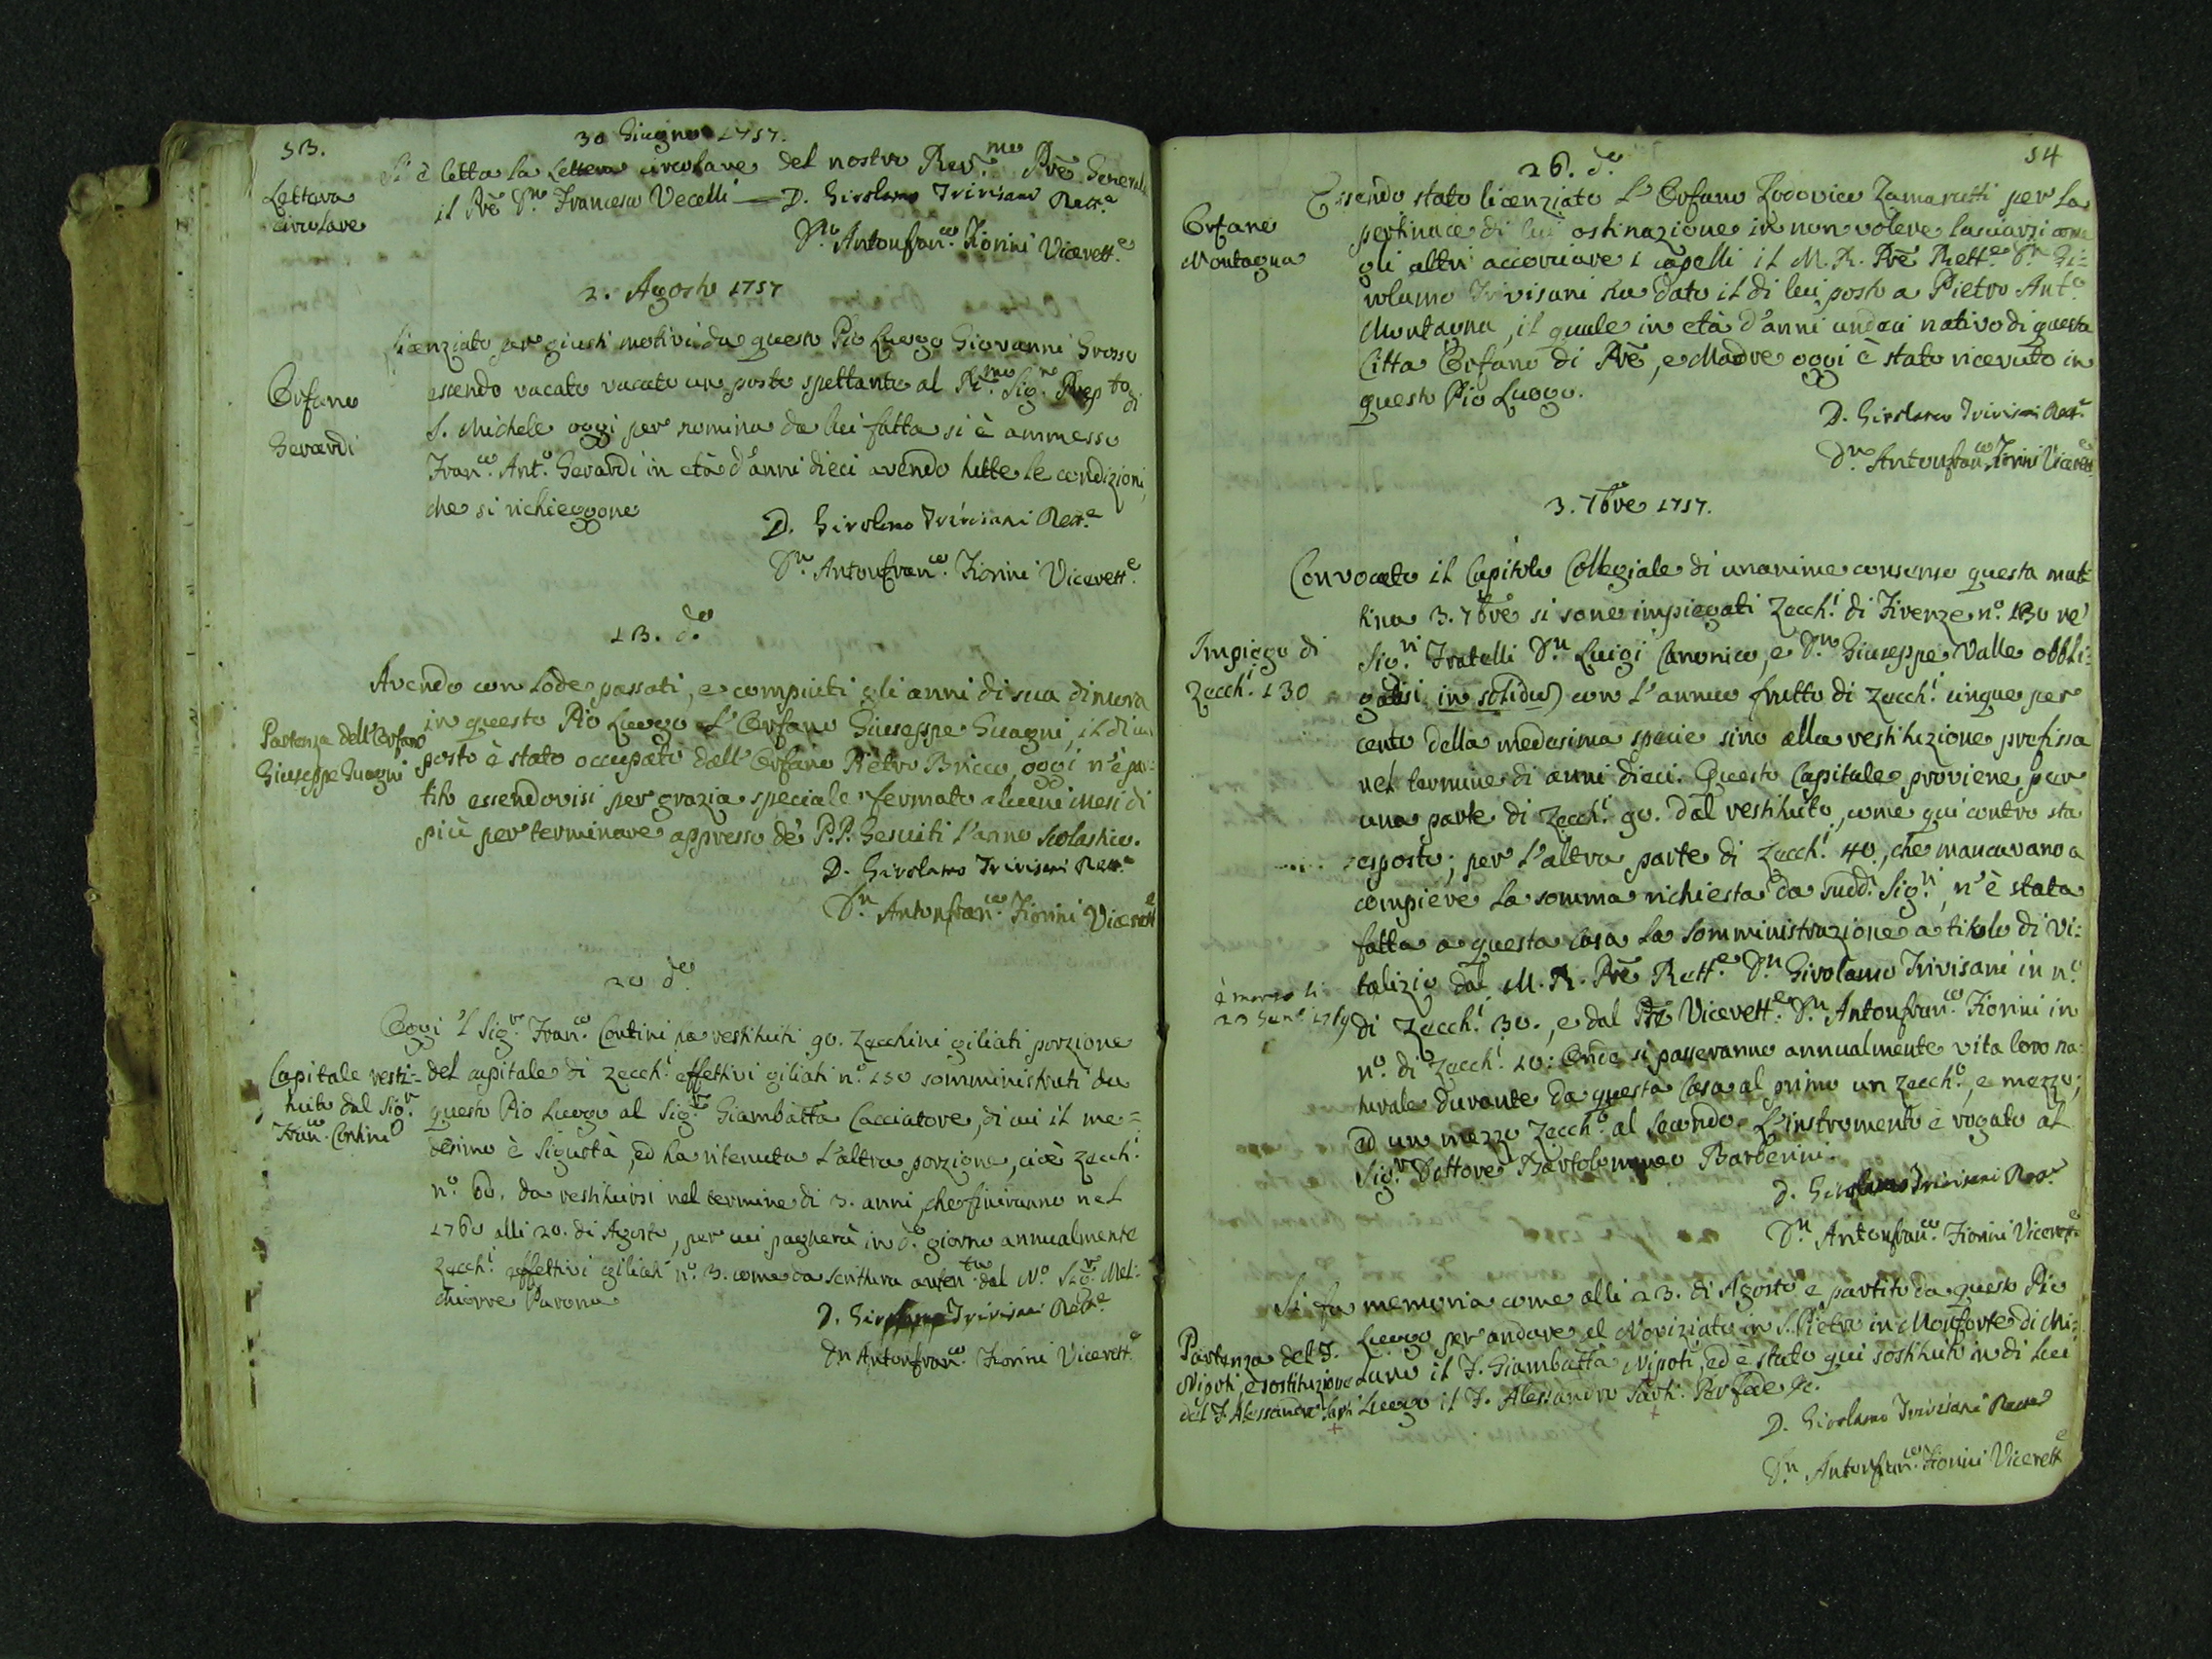 53.
30 Giugno 1757.
Lettera
circolare
Si è letta la Lettera circolare del nostro Rev.mo Prē Generale
il Prē Dn Francesco Vecelli — D. Girolamo Trivisani Rett.e
Dn Antonfran.co Fiorini Vicerett.e
2. Agosto 1757
Orfano
Gerardi
Licenziato per giusti motivi da questo Pio Luogo Giovanni Grosso
essendo vacato vacato un posto spettante al R.mo Sig.r Prep.to di
S. Michele oggi per nomina da lui fatta si è ammesso
Fran.co Ant.o Gerardi in età d'anni dieci avendo tutte le condizioni,
che si richieggono
D. Girolamo Trivisani Rett.e
Dn Antonfran.co Fiorini Vicerett.e
13. d.o
Partenza dell'Orfano
Giuseppe Guagni
Avendo con lode passati, e compiuti gli anni di sua dimora
in questo Pio Luogo l'Orfano Giuseppe Guagni, il di cui
posto è stato occupato dall'Orfano Pietro Bricco, oggi n'è par-
tito essendovisi per grazia speciale fermato alcuni mesi di
più per terminare appresso de' P.P. Gesuiti l'anno Scolastico.
D. Girolamo Trivisani Rett.e
Dn Antonfran.co Fiorini Vicerett.e
20 d.o
Capitale resti-
tuito dal Sig.r
Fran.co Contini
Oggi 'l Sig.r Fran.co Contini ha restituiti 90. Zecchini giliati porzione
del capitale di zecch.i effettivi giliati n.o 150 somministrati da
questo Pio Luogo al Sig.r Giambatta Cacciatore, di cui il me-
desimo è Sigurtà, ed ha ritenuta l'altra porzione, cioè zecch.i
n.o 60. da restituirsi nel termine di 3. anni, che finiranno nel
1760 alli 20. di Agosto, per cui pagherà in d.o giorno annualmente
Zecch.i effettivi giliati n.o 3. come da scrittura auten.ta dal N.o Sig.r Mel-
chiorre Pavona
D. Girolamo Trivisani Rett.e
Dn Antonfran.co Fiorini Vicerett.e
54
26. d.o
Orfano
Montagna
Essendo stato licenziato l'Orfano Lodovico Zamarutti per la
pertinace di lui ostinazione in non volere lasciarsi come
gli altri accorciare i capelli il M. R. Prē Rett.e Dn Gi-
rolamo Trivisani ha dato il di lui posto a Pietro Ant.o
Montagna, il quale in età d'anni undeci nativo di questa
Città Orfano di Prē, e Madre oggi è stato ricevuto in
questo Pio Luogo.
D. Girolamo Trivisani Rett.e
Dn Antonfran.co Fiorini Vicerett.e
3. 7bre 1757.
Impiego di
Zecch.i 130
Convocato il Capitolo Collegiale di unanime consenso questa mat-
tina 3. 7bre si sono impiegati Zecch.i di Firenze n.o 130 ne'
Sig.ri Fratelli Dn Luigi Canonico, e Dn Giuseppe Valle obbli-
gatisi in solidum con l'annuo frutto di Zecch.i cinque per
cento della medesima specie sino alla restituzione prefissa
nel termine di anni dieci. Questo Capitale proviene per
una parte di Zecch.i 90. dal restituito, come qui contro sta
esposto; per l'altra parte di Zecch.i 40., che mancavano a
compiere la somma richiesta da sudd.i Sig.ri, n'è stata
fatta a questa Casa la Somministrazione a titolo di Vi-
è morto li
23 Gen.o 1769
talizio dal M. R. Prē Rett.e Dn Girolamo Trivisani in n.o
di Zecch.i 30., e dal Prē Vicerett.e Dn Antonfran.co Fiorini in
n.o di Zecch.i 10: Onde si passeranno annualmente vita loro na-
turale durante da questa Casa al primo un Zecch.o, e mezzo,
ed un mezzo Zecch.o al secondo. L'instromento è rogato al
Sig.r Dottore Bartolommeo Barberini.
D. Girolamo Trivisani Rett.e
Dn Antonfran.co Fiorini Vicerett.e
Partenza del F.
Nipoti, e sostituzione
del F. Alessandro Sarti
Si fa memoria come alli 23. di Agosto è partito da questo Pio
Luogo per andare al Noviziato in S. Pietro in Monforte di Mi-
lano il F. Giambatta Nipoti, ed è stato qui sostituito in di lui
luogo il F. Alessandro Sarti. Per fede &c.
D. Girolamo Trivisani Rett.e
Dn Antonfran.co Fiorini Vicerett.e